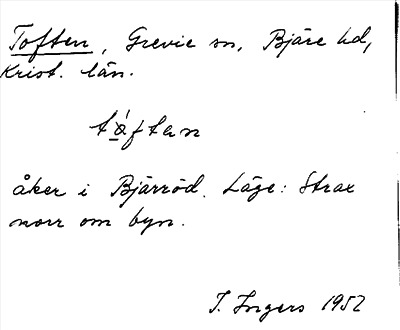 Toften, Grevie sn, Bjäre hd,
Krist. län.
tòftan
åker i Bjärröd. Läge: Strax
norr om byn.
I. Ingers 1952